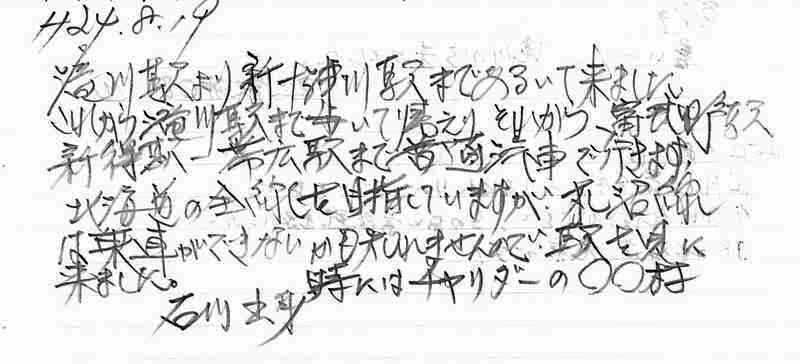 H24.8.19
滝川駅より新十津川駅まであるいて来ました。
これから滝川駅まで歩いて帰えり、それから、富良野駅
新得駅ー帯広駅まで普通汽車で行きます。
北海道の全線を目指していますが、札沼線
は乗車ができないかも知れませんので、駅を見に
来ました。 時にはチャリダーの〇〇村
石川